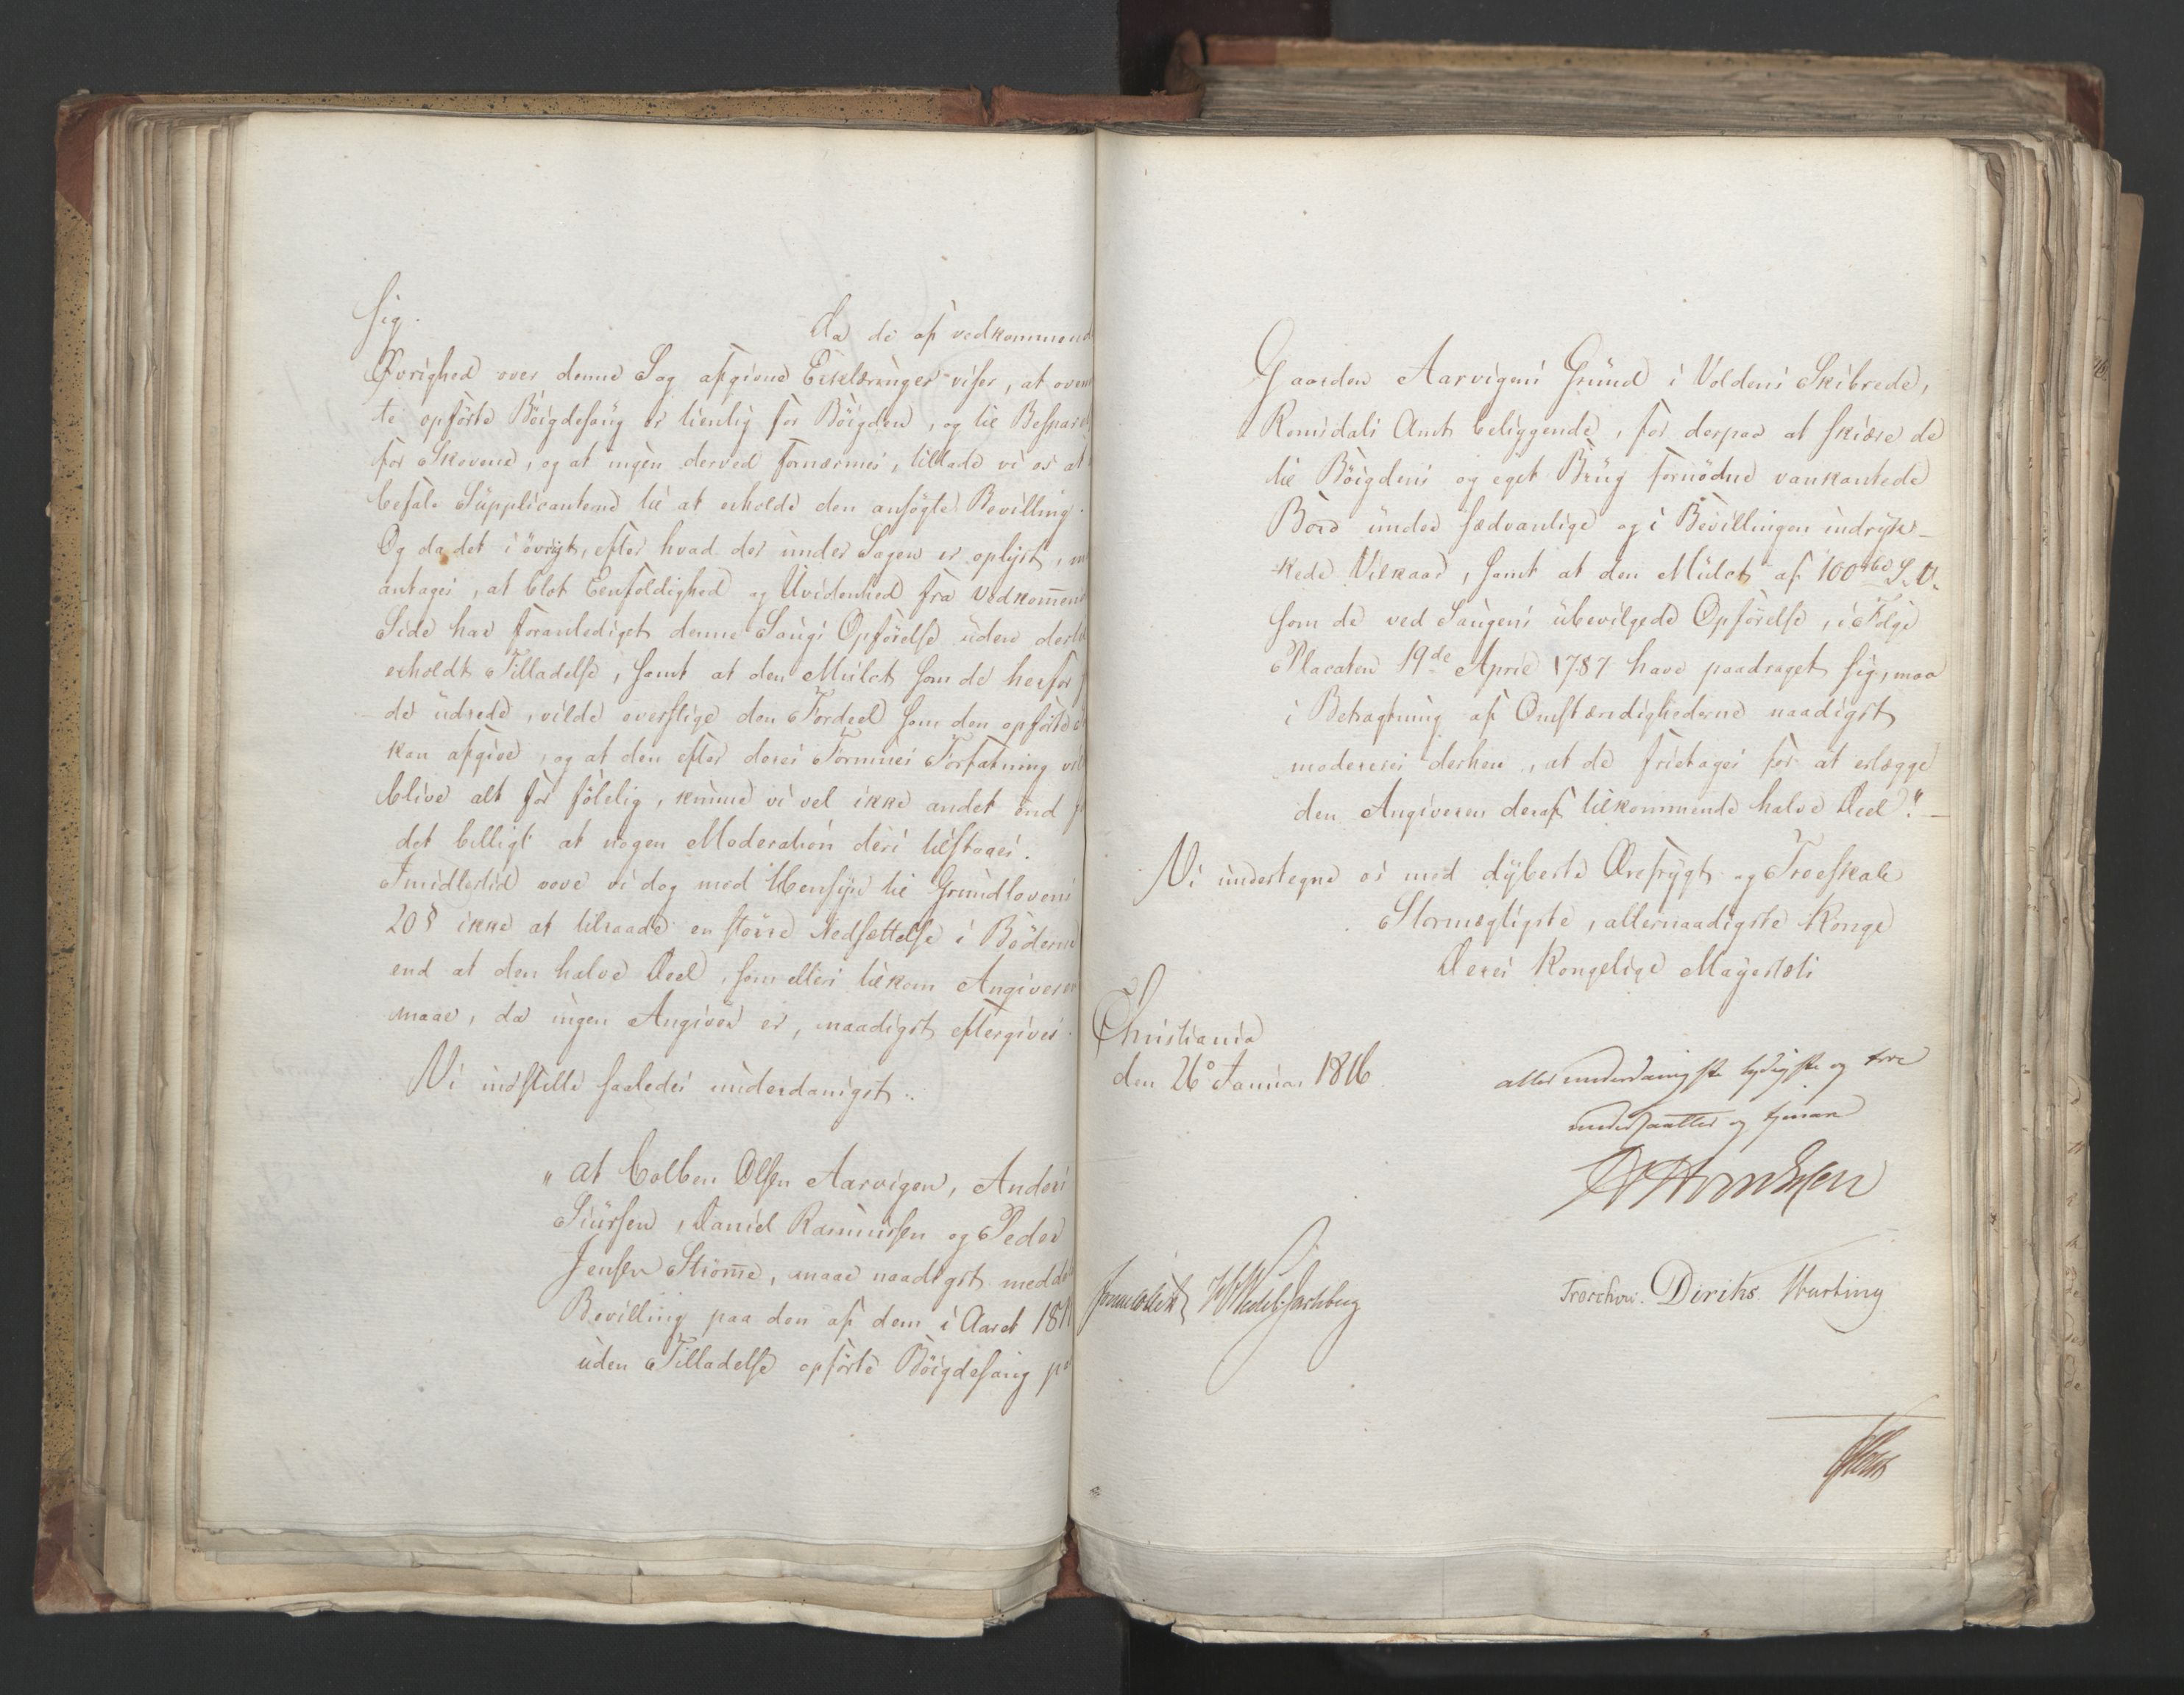 sig.
Da de af vedkommend
Øvrighed over denne Sag afgivne Erklæringer viser, at oven
te opførte Böigdesaug er tienlig for Böigden, og til Bespare
for Skovene, og at ingen derved fornærmes, tillade vi os at
befale Supplicanterne til at erholde den ansøgte Bevilling.
Og da det i øvrigt, efter hvad der under Sagen er oplyst, m
antages, at blot Eenfoldighed og Uvidenhed fra Vedkom̄en
Side har foranlediget denne Saugs Opförelse uden dertil
erholdt Tilladelse, samt at den Mulct som de herfor
de udrede, vilde overstige den Fordeel som den opførte
kan afgive, og at den efter deres Formues Forfatning vil
blive alt for fölelig, kunne vi vel ikke andet end
det billigt at nogen Moderation deri tilstaaes.
Imidlertid vove vi dog med Hensyn til Grundlovens
20 § ikke at tilraade en större Nedsættelse i Böderne
end at den halve Deel, som ellers tilkom Angiveren
maae, da ingen Angiver er, naadigst eftergives.
Vi indstille saaledes underdanigst:
"at Colben Olsen Aarvigen, Anders
Siursen, Daniel Rasmussen og Peder
Jensen Ström̄e, maae naadigst meddel
Bevilling paa den af dem i Aaret 181
uden Tilladelse opförte Böigdesaug p
Gaarden Aarvigens Grund i Voldens Skibrede,
Romsdals Amt beliggende, for derpaa at skiære de
til Böigdens og eget Brug fornödne vankantede
Bord under sædvanlige og i Bevillingen indryk-
kede Vilkaar, samt at den Mulct af 100 rbd S.V.
som de ved Saugens ubevilgede Opförelse, i Fölge
Placaten 19de April 1787 have paadraget sig, maa
i Betragtning af Omstændighederne naadigst
modereres derhen, at de fritages for at erlægge
den Angiveren deraf tilkommende halve Deel." —
Vi undertegne os med dybeste Ærefrygt og Troeskab
Stormægtigste, allernaadigste Konge
Deres Kongelige Mayestæts
Christiania
den 26° Januar 1816.
allerunderdanigste lydigste og troe
undersaatter og tjenere
Sommerhielm HWedel-Jarlsberg
Treschow. Diriks. Hartting